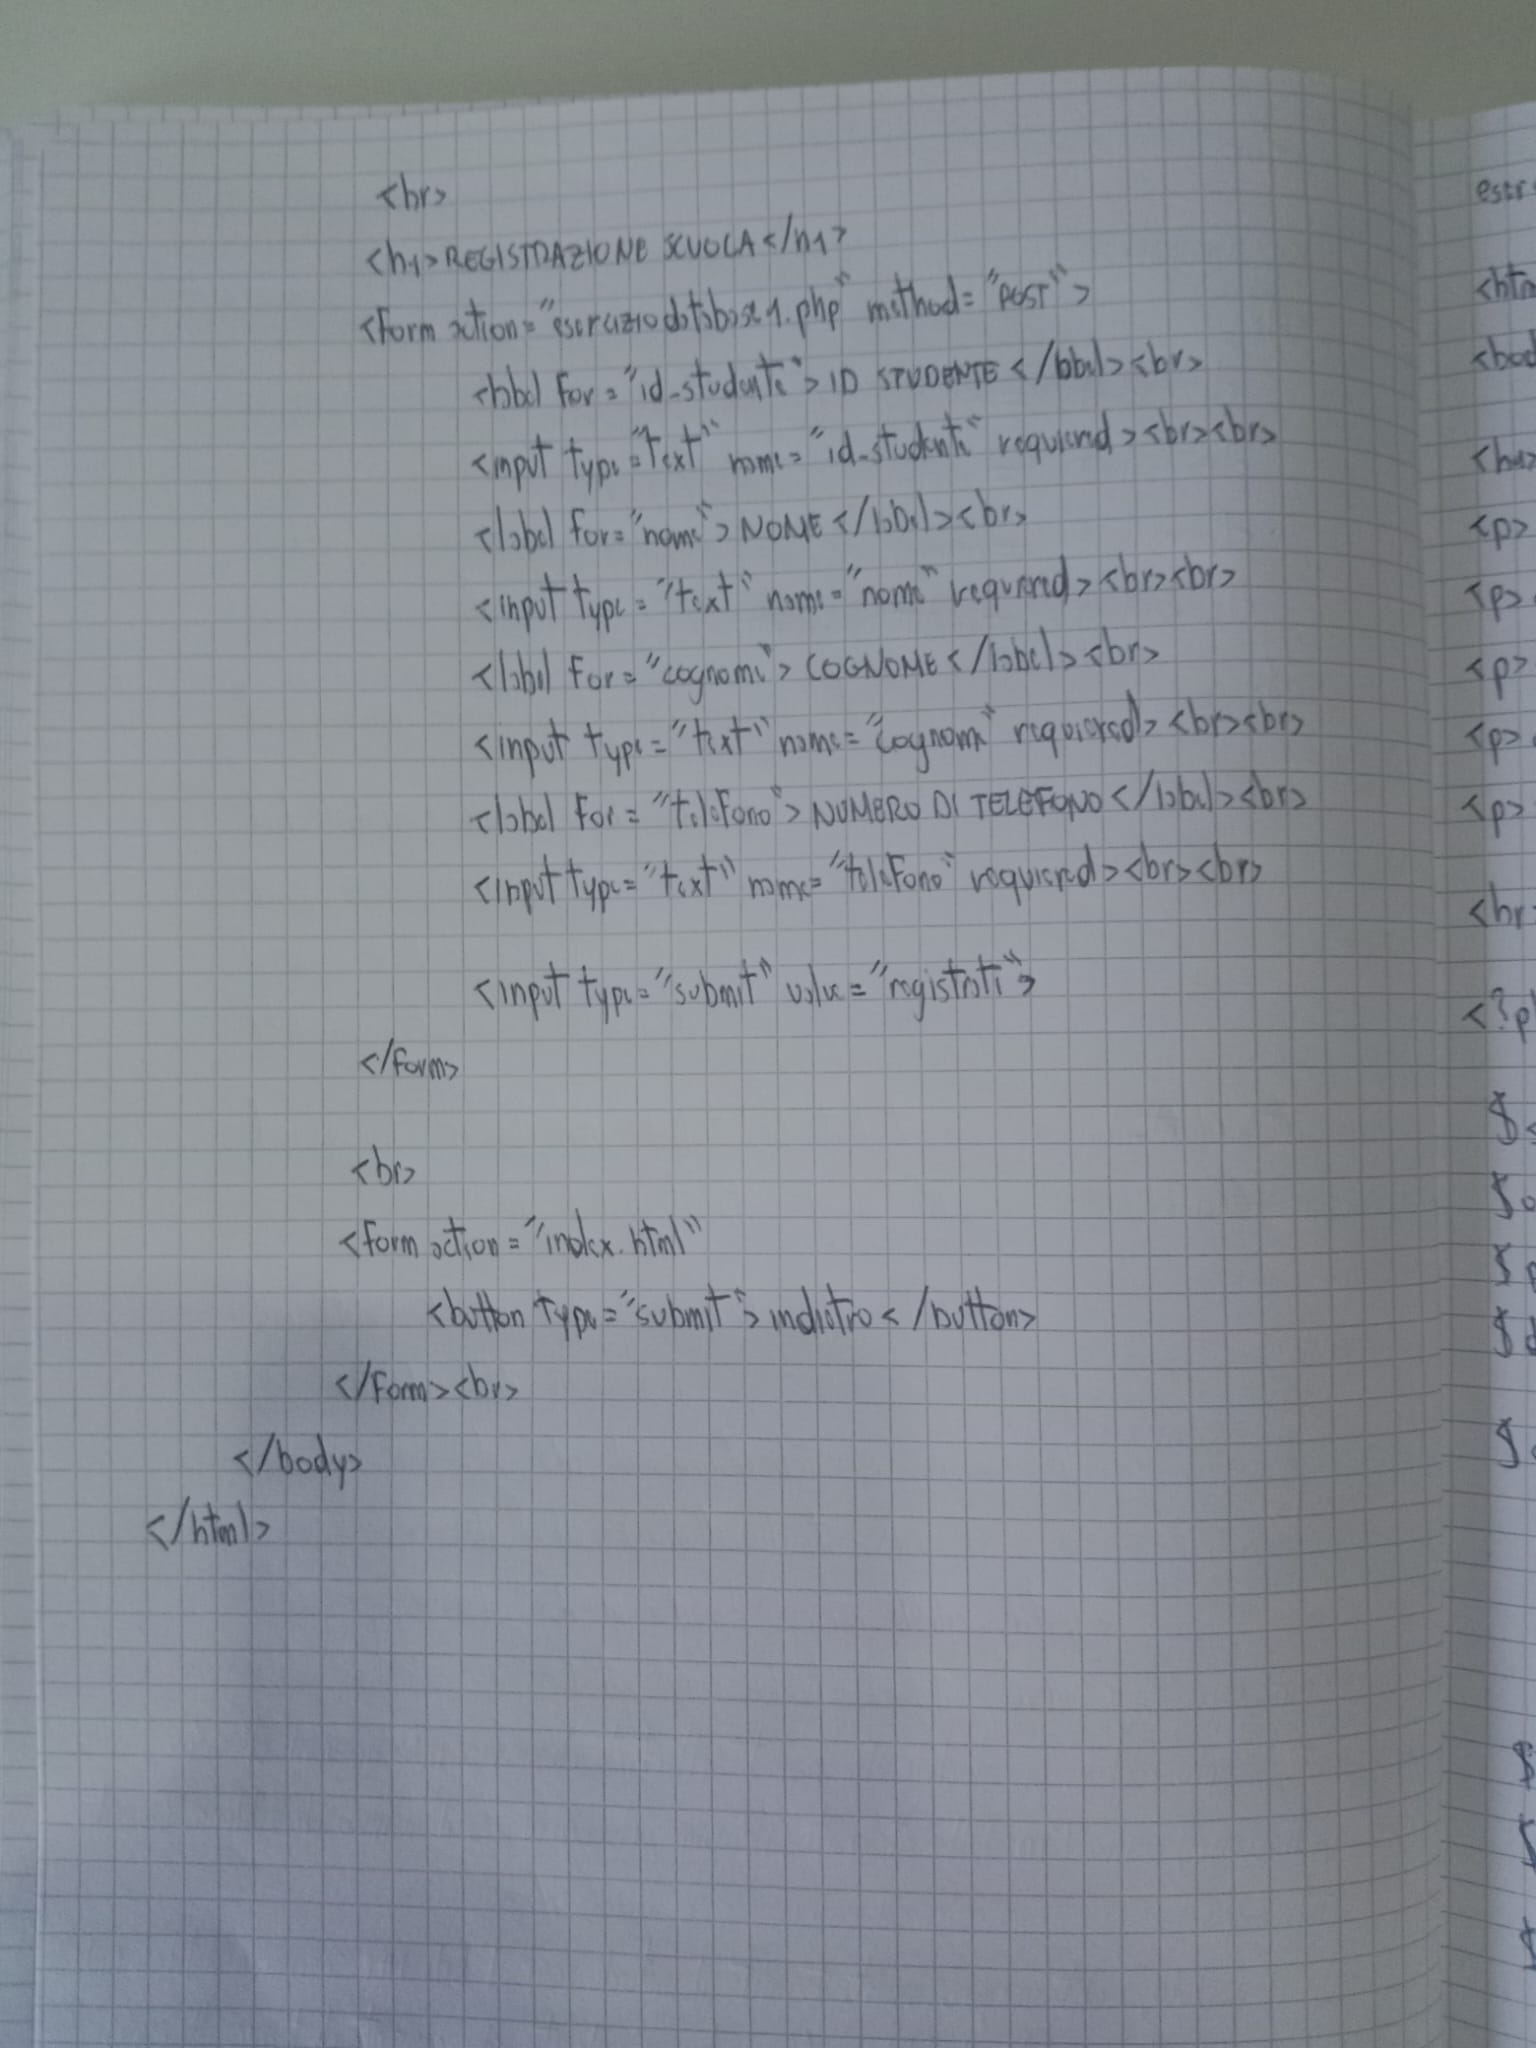 <br>
<h1>REGISTRAZIONE SCUOLA</h1>
<form action="eserciziodatabase1.php" method="POST">
<label for="id_studente">ID STUDENTE</label><br>
<input type="text" name="id_studente" requiered><br><br>
<label for="nome">NOME</label><br>
<input type="text" name="nome" requiered><br><br>
<label for="cognome">COGNOME</label><br>
<input type="text" name="cognome" requiered><br><br>
<label for="telefono">NUMERO DI TELEFONO</label><br>
<input type="text" name="telefono" requiered><br><br>
<input type="submit" value="registrati">
</form>
<br>
<form action="index.html"
<button type="submit">indietro</button>
</form><br>
</body>
</html>
<p>
<p>
<p>
<p>
<p>